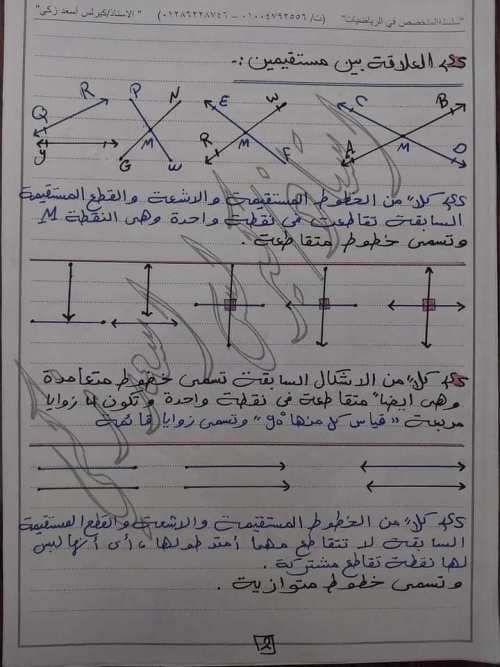 "سلسلة المتخصص في الرياضيات" (ت/ ٠١٠٠٤٧٩٢٥٥٦ - ٠١٢٨٦٢٢٨٧٤٦) "الاستاذ/كيرلس أسعد زكي"
العلاقة بين مستقيمين :-
R P N E W C B
Q M M R M A
y G W F D
كلاً من الخطوط المستقيمة والاشعة والقطع المستقيمة
السابقة تقاطعت في نقطة واحدة وهى النقطة M
وتسمى خطوط متقاطعة .
كلاً من الاشكال السابقة تسمى خطوط متعامدة
وهى ايضاً متقاطعة فى نقطة واحدة وتكون 4 زوايا
مربعة "قياس كل منها 90°" وتسمى زوايا قائمة
كلاً من الخطوط المستقيمة والاشعة والقطع المستقيمة
السابقة لا تتقاطع مهما أمتد طولها ، أى أنها ليس
لها نقطة تقاطع مشتركة .
وتسمى خطوط متوازية .